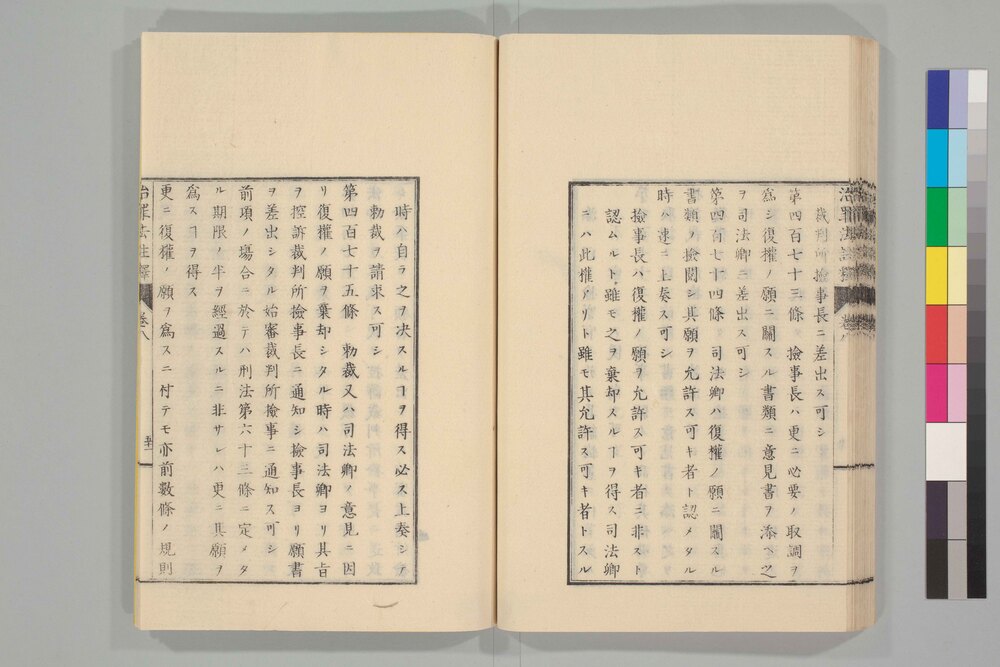 治罪法註釋 卷八
裁判所撿事長ニ差出ス可シ
第四百七十三條 撿事長ハ更ニ必要ノ取調ヲ
爲シ復權ノ願ニ關スル書類ニ意見書ヲ添ヘ之
ヲ司法卿ニ差出ス可シ
第四百七十四條 司法卿ハ復權ノ願ニ關スル
書類ヲ撿閲シ其願ヲ允許ス可キ者ト認メタル
時ハ速ニ上奏ス可シ
撿事長ハ復權ノ願ヲ允許ス可キ者ニ非スト
認ムルト雖モ之ヲ棄却スルヿヲ得ス司法卿
ニハ此權アリト雖モ其允許ス可キ者トスル
時ハ自ラ之ヲ决スルヿヲ得ス必ス上奏シテ
勅裁ヲ請求ス可シ
第四百七十五條 勅裁又ハ司法卿ノ意見ニ因
リ復權ノ願ヲ棄却シタル時ハ司法卿ヨリ其旨
ヲ控訴裁判所撿事長ニ通知シ撿事長ヨリ願書
ヲ差出シタル始審裁判所撿事ニ通知ス可シ
前項ノ場合ニ於テハ刑法第六十三條ニ定メタ
ル期限ノ半ヲ經過スルニ非サレハ更ニ其願ヲ
爲スヿヲ得ス
更ニ復權ノ願ヲ爲スニ付テモ亦前數條ノ規則
治罪法註釋 卷八